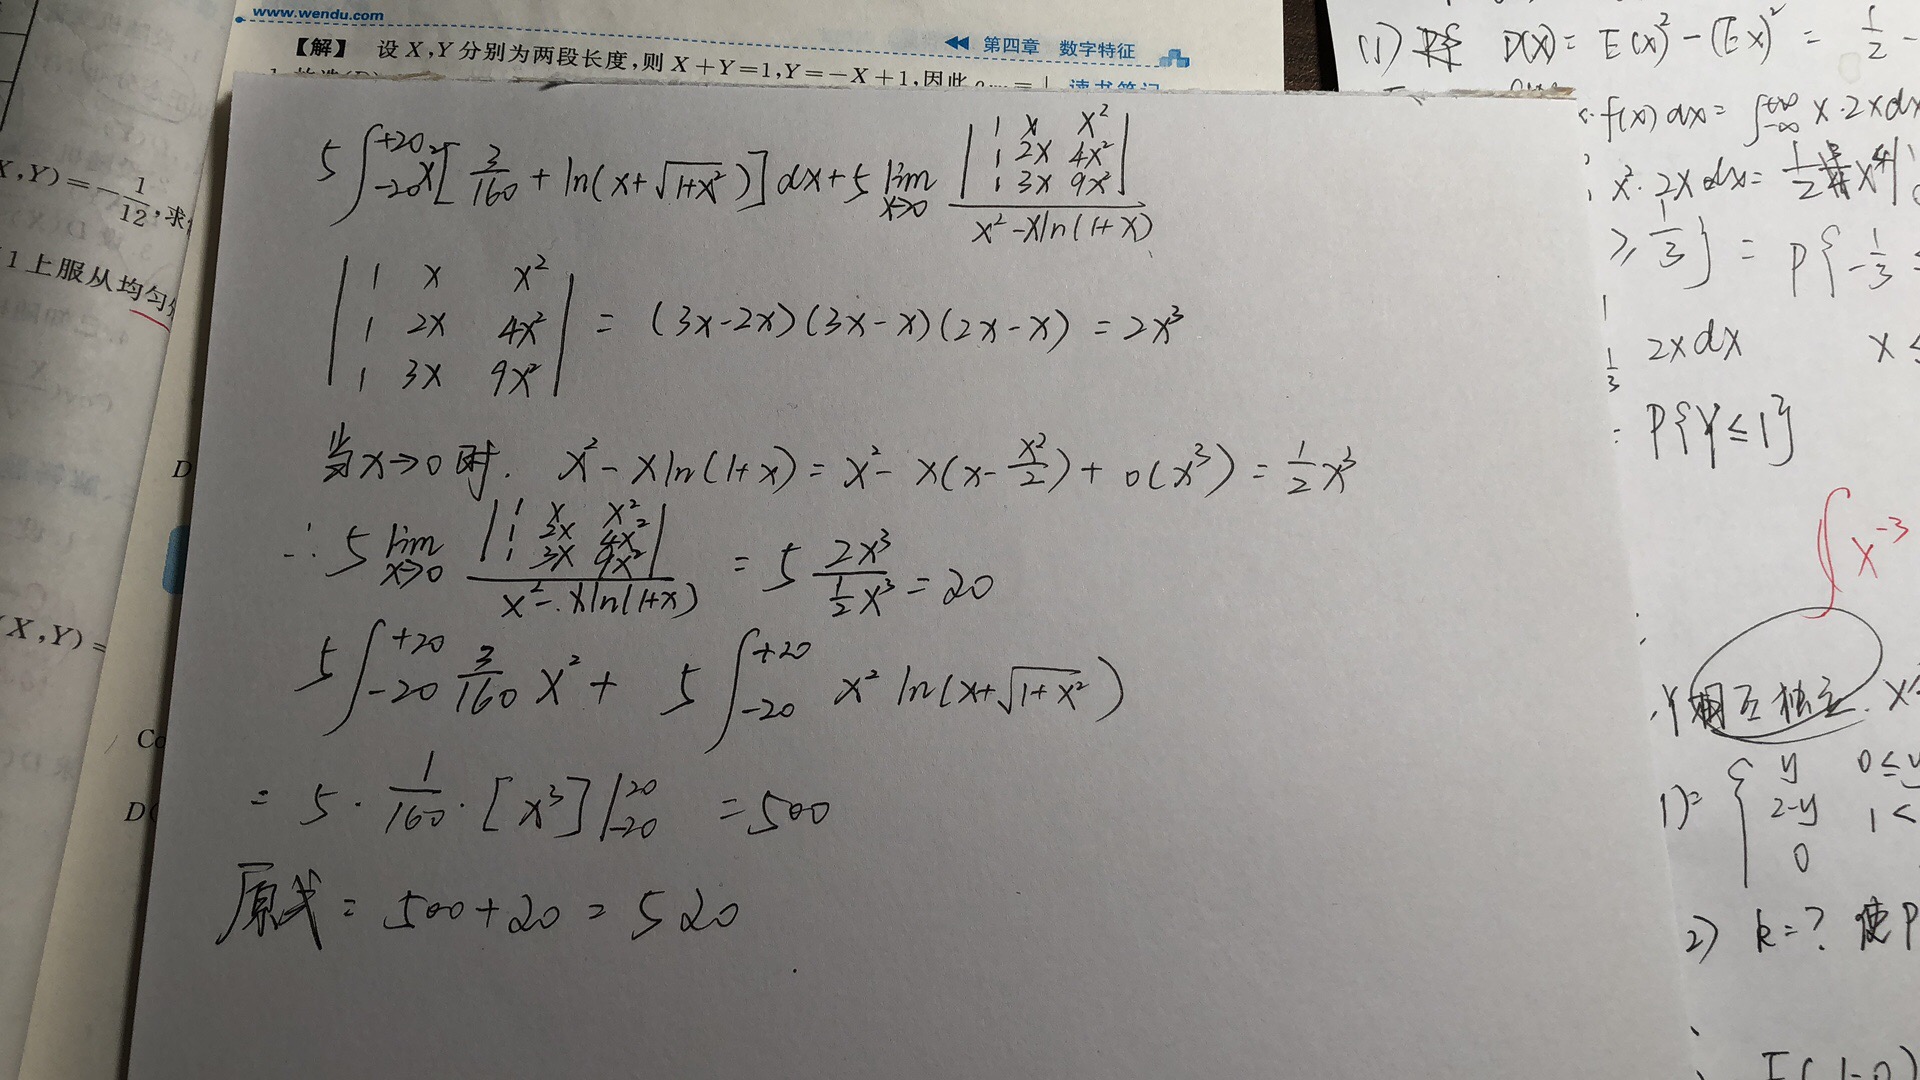 www.wendu.com
【解】 设X,Y分别为两段长度,则X+Y=1,Y=-X+1,因此
第四章 数字特征
读书笔记
5∫_{-20}^{+20} x²[3/160 + ln(x+√(1+x²))]dx + 5 lim_{x→0} |1 x x²; 1 2x 4x²; 1 3x 9x²| / (x²-xln(1+x))
|1 x x²; 1 2x 4x²; 1 3x 9x²| = (3x-2x)(3x-x)(2x-x) = 2x³
当x→0时. x²-xln(1+x) = x²-x(x-x²/2)+o(x³) = 1/2 x³
∴ 5 lim_{x→0} |1 x x²; 1 2x 4x²; 1 3x 9x²| / (x²-xln(1+x)) = 5 2x³/(1/2 x³) = 20
5∫_{-20}^{+20} 3/160 x² + 5∫_{-20}^{+20} x² ln(x+√(1+x²))
= 5·1/160·[x³]|_{-20}^{20} = 500
原式 = 500+20 = 520
X,Y)=-1/12,求
1上服从均匀
D
(X,Y)=
Co
D(
(1) D(X)= E(X)²-(EX)² = 1/2 -
f(x)dx= ∫_{-∞}^{+∞} x·2xdx
x²·2xdx= 1/2 x⁴|
≥ 1/3} = P{-1/3 ≤
2xdx x ≤
= P{Y≤1}
∫x⁻³
Y相互独立. X
1)= { y 0≤y
2-y 1<
0
2) k=? 使P
F(1-0)